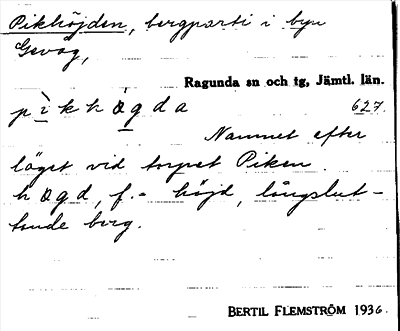 Pikhöjden, bergparti i byn
Gevåg,
Ragunda sn och tg, Jämtl. län.
pìkhøgda 627.
Namnet efter
läget vid torpet Piken.
høgd, f. = höjd, långslut-
tande berg.
BERTIL FLEMSTRÖM 1936.